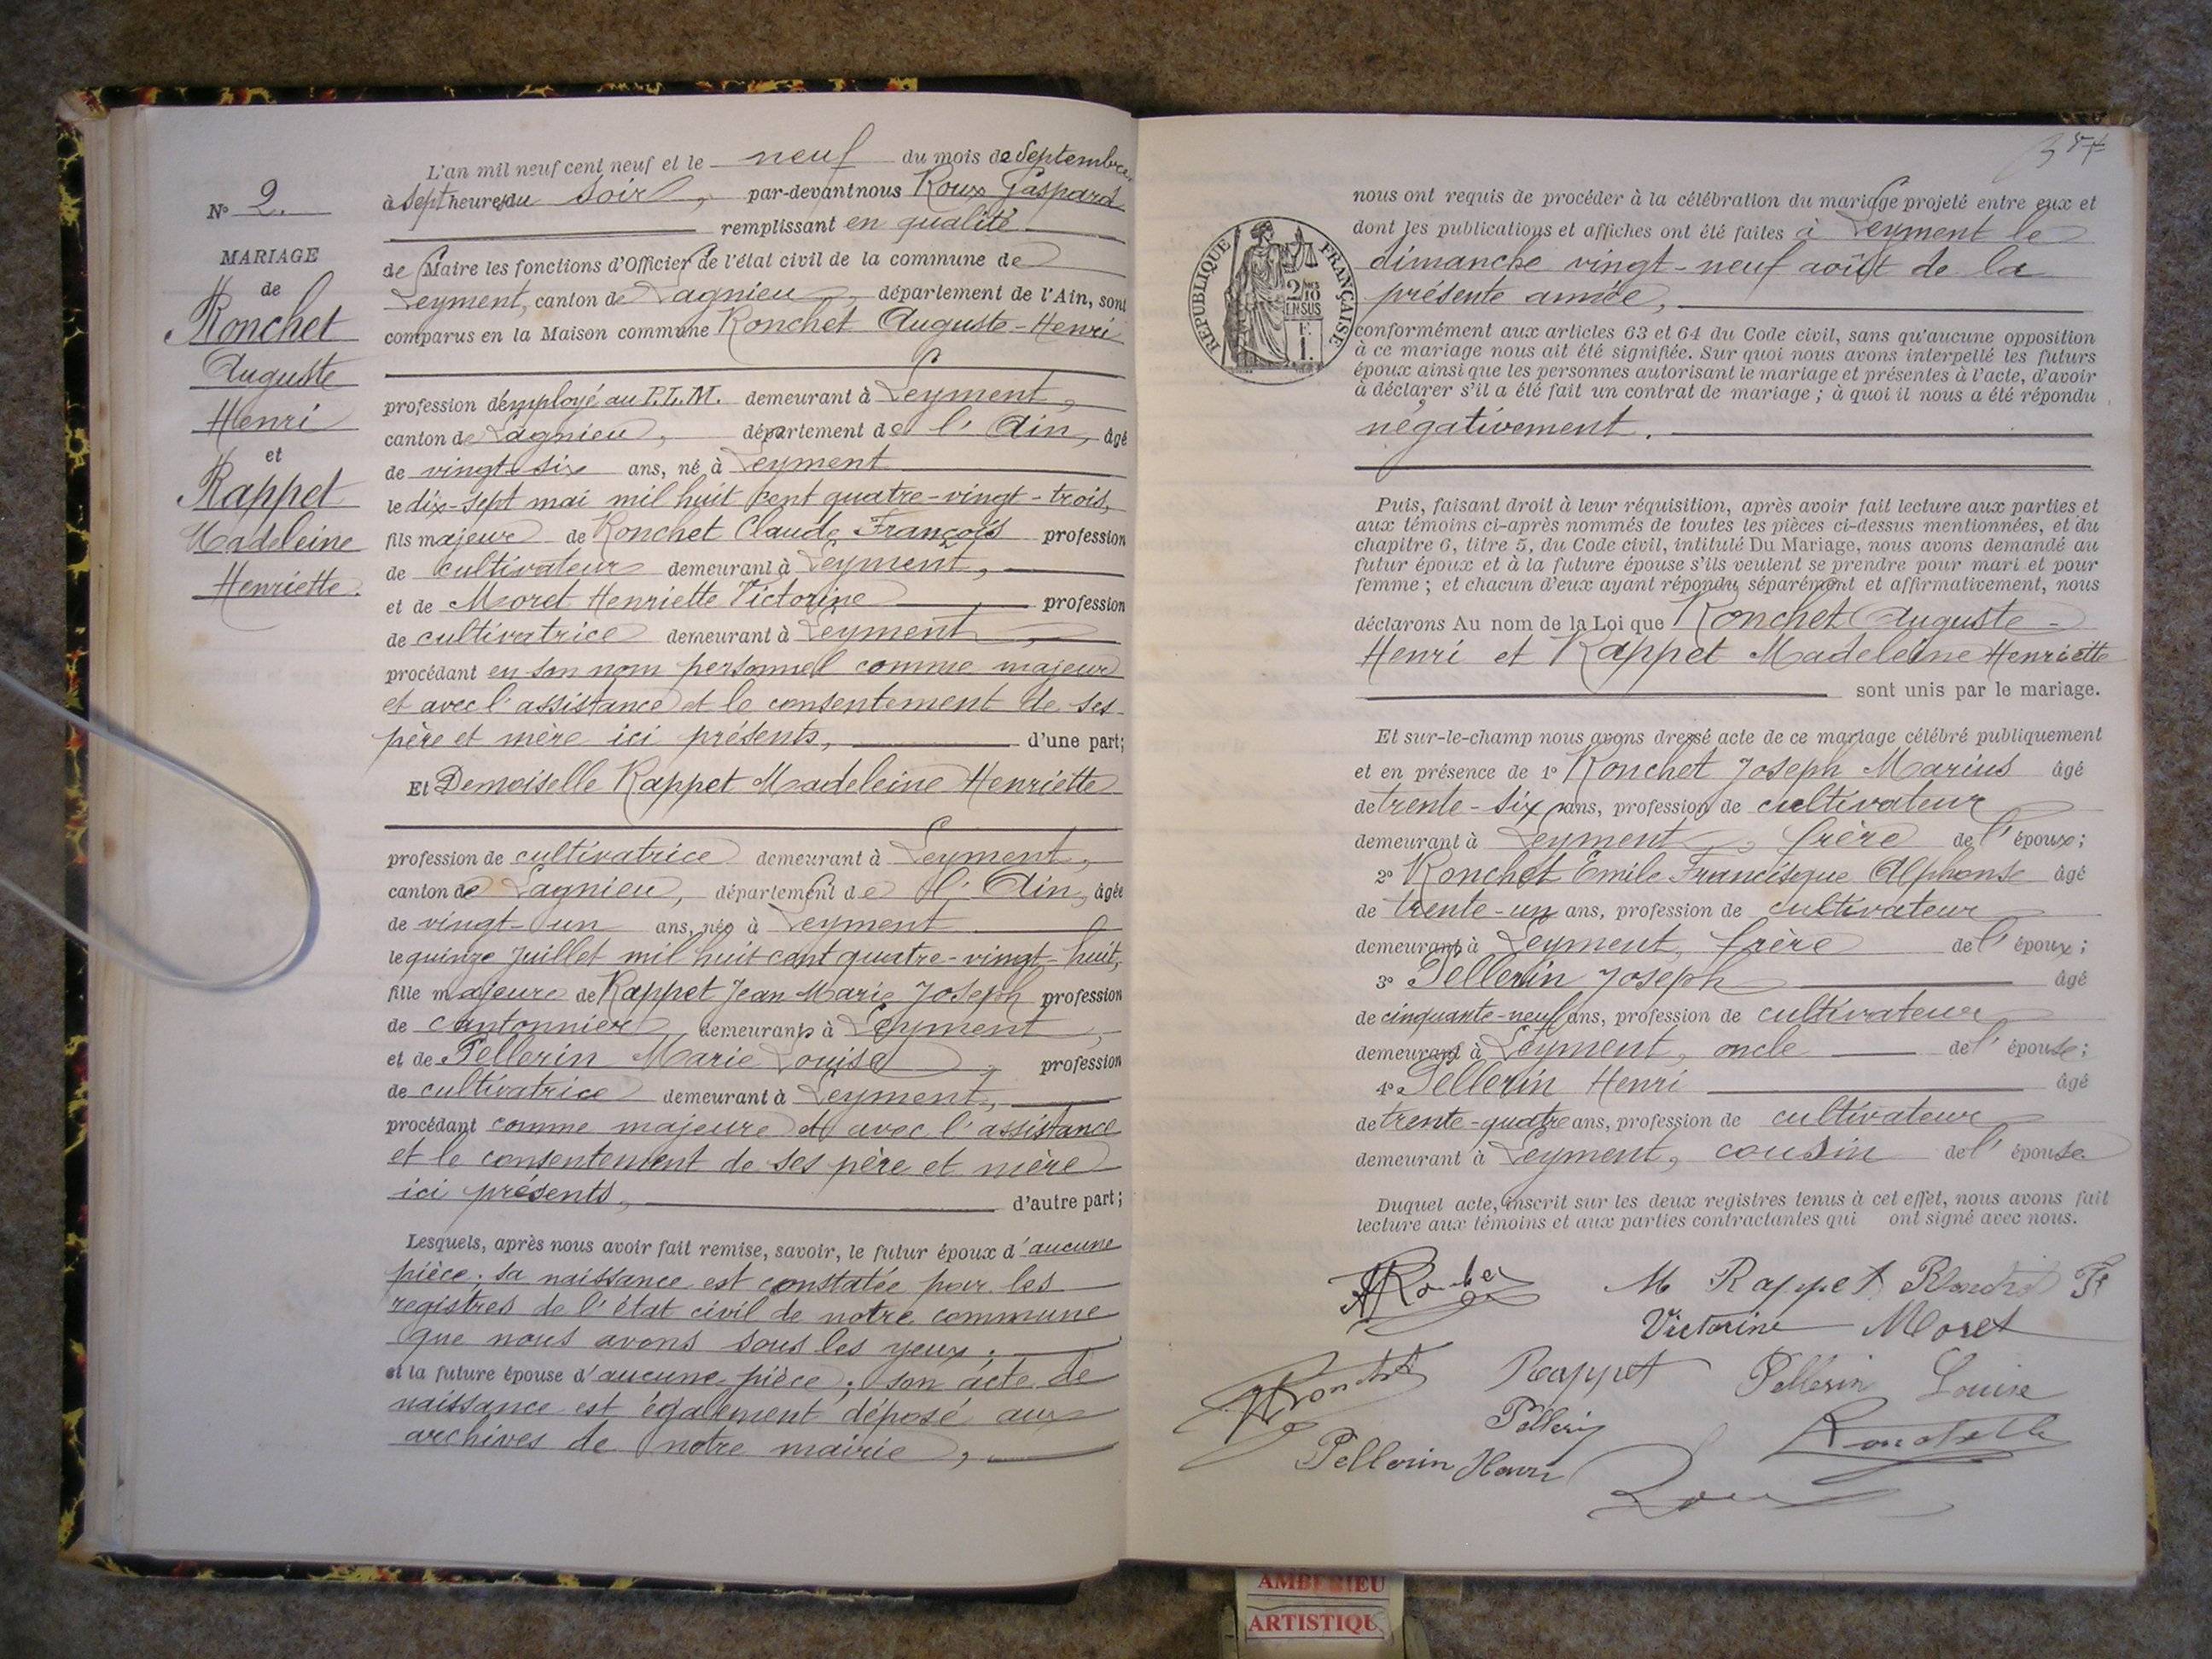 N° 2.
MARIAGE
de
Ronchet
Auguste
Henri
et
Rappet
Madeleine
Henriette.
L'an mil neuf cent neuf et le neuf du mois de Septembre,
à Sept heures du soir, par-devant nous Roux Gaspard
remplissant en qualité
de Maire les fonctions d'Officier de l'état civil de la commune de
Leyment, canton de Lagnieu, département de l'Ain, sont
comparus en la Maison commune Ronchet Auguste-Henri
profession d'employé au P.L.M. demeurant à Leyment,
canton de Lagnieu, département de l'Ain, âgé
de vingt-six ans, né à Leyment
le dix-sept mai mil huit cent quatre-vingt-trois,
fils majeur de Ronchet Claude François profession
de cultivateur demeurant à Leyment,
et de Moret Henriette Victorine profession
de cultivatrice demeurant à Leyment,
procédant en son nom personnel comme majeur
et avec l'assistance et le consentement de ses
père et mère ici présents, d'une part;
Et Demoiselle Rappet Madeleine Henriette
profession de cultivatrice demeurant à Leyment,
canton de Lagnieu, département de l'Ain, âgée
de vingt-un ans, née à Leyment
le quinze Juillet mil huit cent quatre-vingt-huit,
fille majeure de Rappet Jean Marie Joseph profession
de cantonnier demeurant à Leyment,
et de Pellerin Marie Louise, profession
de cultivatrice demeurant à Leyment,
procédant comme majeure et avec l'assistance
et le consentement de ses père et mère
ici présents, d'autre part;
Lesquels, après nous avoir fait remise, savoir, le futur époux d'aucune
pièce; sa naissance est constatée par les
registres de l'état civil de notre commune
que nous avons sous les yeux;
et la future épouse d'aucune pièce; son acte de
naissance est également déposé aux
archives de notre mairie,
nous ont requis de procéder à la célébration du mariage projeté entre eux et
dont les publications et affiches ont été faites à Leyment le
dimanche vingt-neuf août de la
présente année,
RÉPUBLIQUE FRANÇAISE
2/10
EN SUS
F.
1.
conformément aux articles 63 et 64 du Code civil, sans qu'aucune opposition
à ce mariage nous ait été signifiée. Sur quoi nous avons interpellé les futurs
époux ainsi que les personnes autorisant le mariage et présentes à l'acte, d'avoir
à déclarer s'il a été fait un contrat de mariage; à quoi il nous a été répondu
négativement.
Puis, faisant droit à leur réquisition, après avoir fait lecture aux parties et
aux témoins ci-après nommés de toutes les pièces ci-dessus mentionnées, et du
chapitre 6, titre 5, du Code civil, intitulé Du Mariage, nous avons demandé au
futur époux et à la future épouse s'ils veulent se prendre pour mari et pour
femme; et chacun d'eux ayant répondu séparément et affirmativement, nous
déclarons Au nom de la Loi que Ronchet Auguste-
Henri et Rappet Madeleine Henriette
sont unis par le mariage.
Et sur-le-champ nous avons dressé acte de ce mariage célébré publiquement
et en présence de 1° Ronchet Joseph Marius âgé
de trente-six ans, profession de cultivateur
demeurant à Leyment, frère de l'époux;
2° Ronchet Emile Francisque Alphonse âgé
de trente-un ans, profession de cultivateur
demeurant à Leyment, frère de l'époux;
3° Pellerin Joseph âgé
de cinquante-neuf ans, profession de cultivateur
demeurant à Leyment, oncle de l'épouse;
4° Pellerin Henri âgé
de trente-quatre ans, profession de cultivateur
demeurant à Leyment, cousin de l'épouse
Duquel acte, inscrit sur les deux registres tenus à cet effet, nous avons fait
lecture aux témoins et aux parties contractantes qui ont signé avec nous.
M Rappet
Victorine Moret
Rappet Pellerin Louise
Pellerin
Pellerin Henri
Roux
AMBERIEU
ARTISTIQU